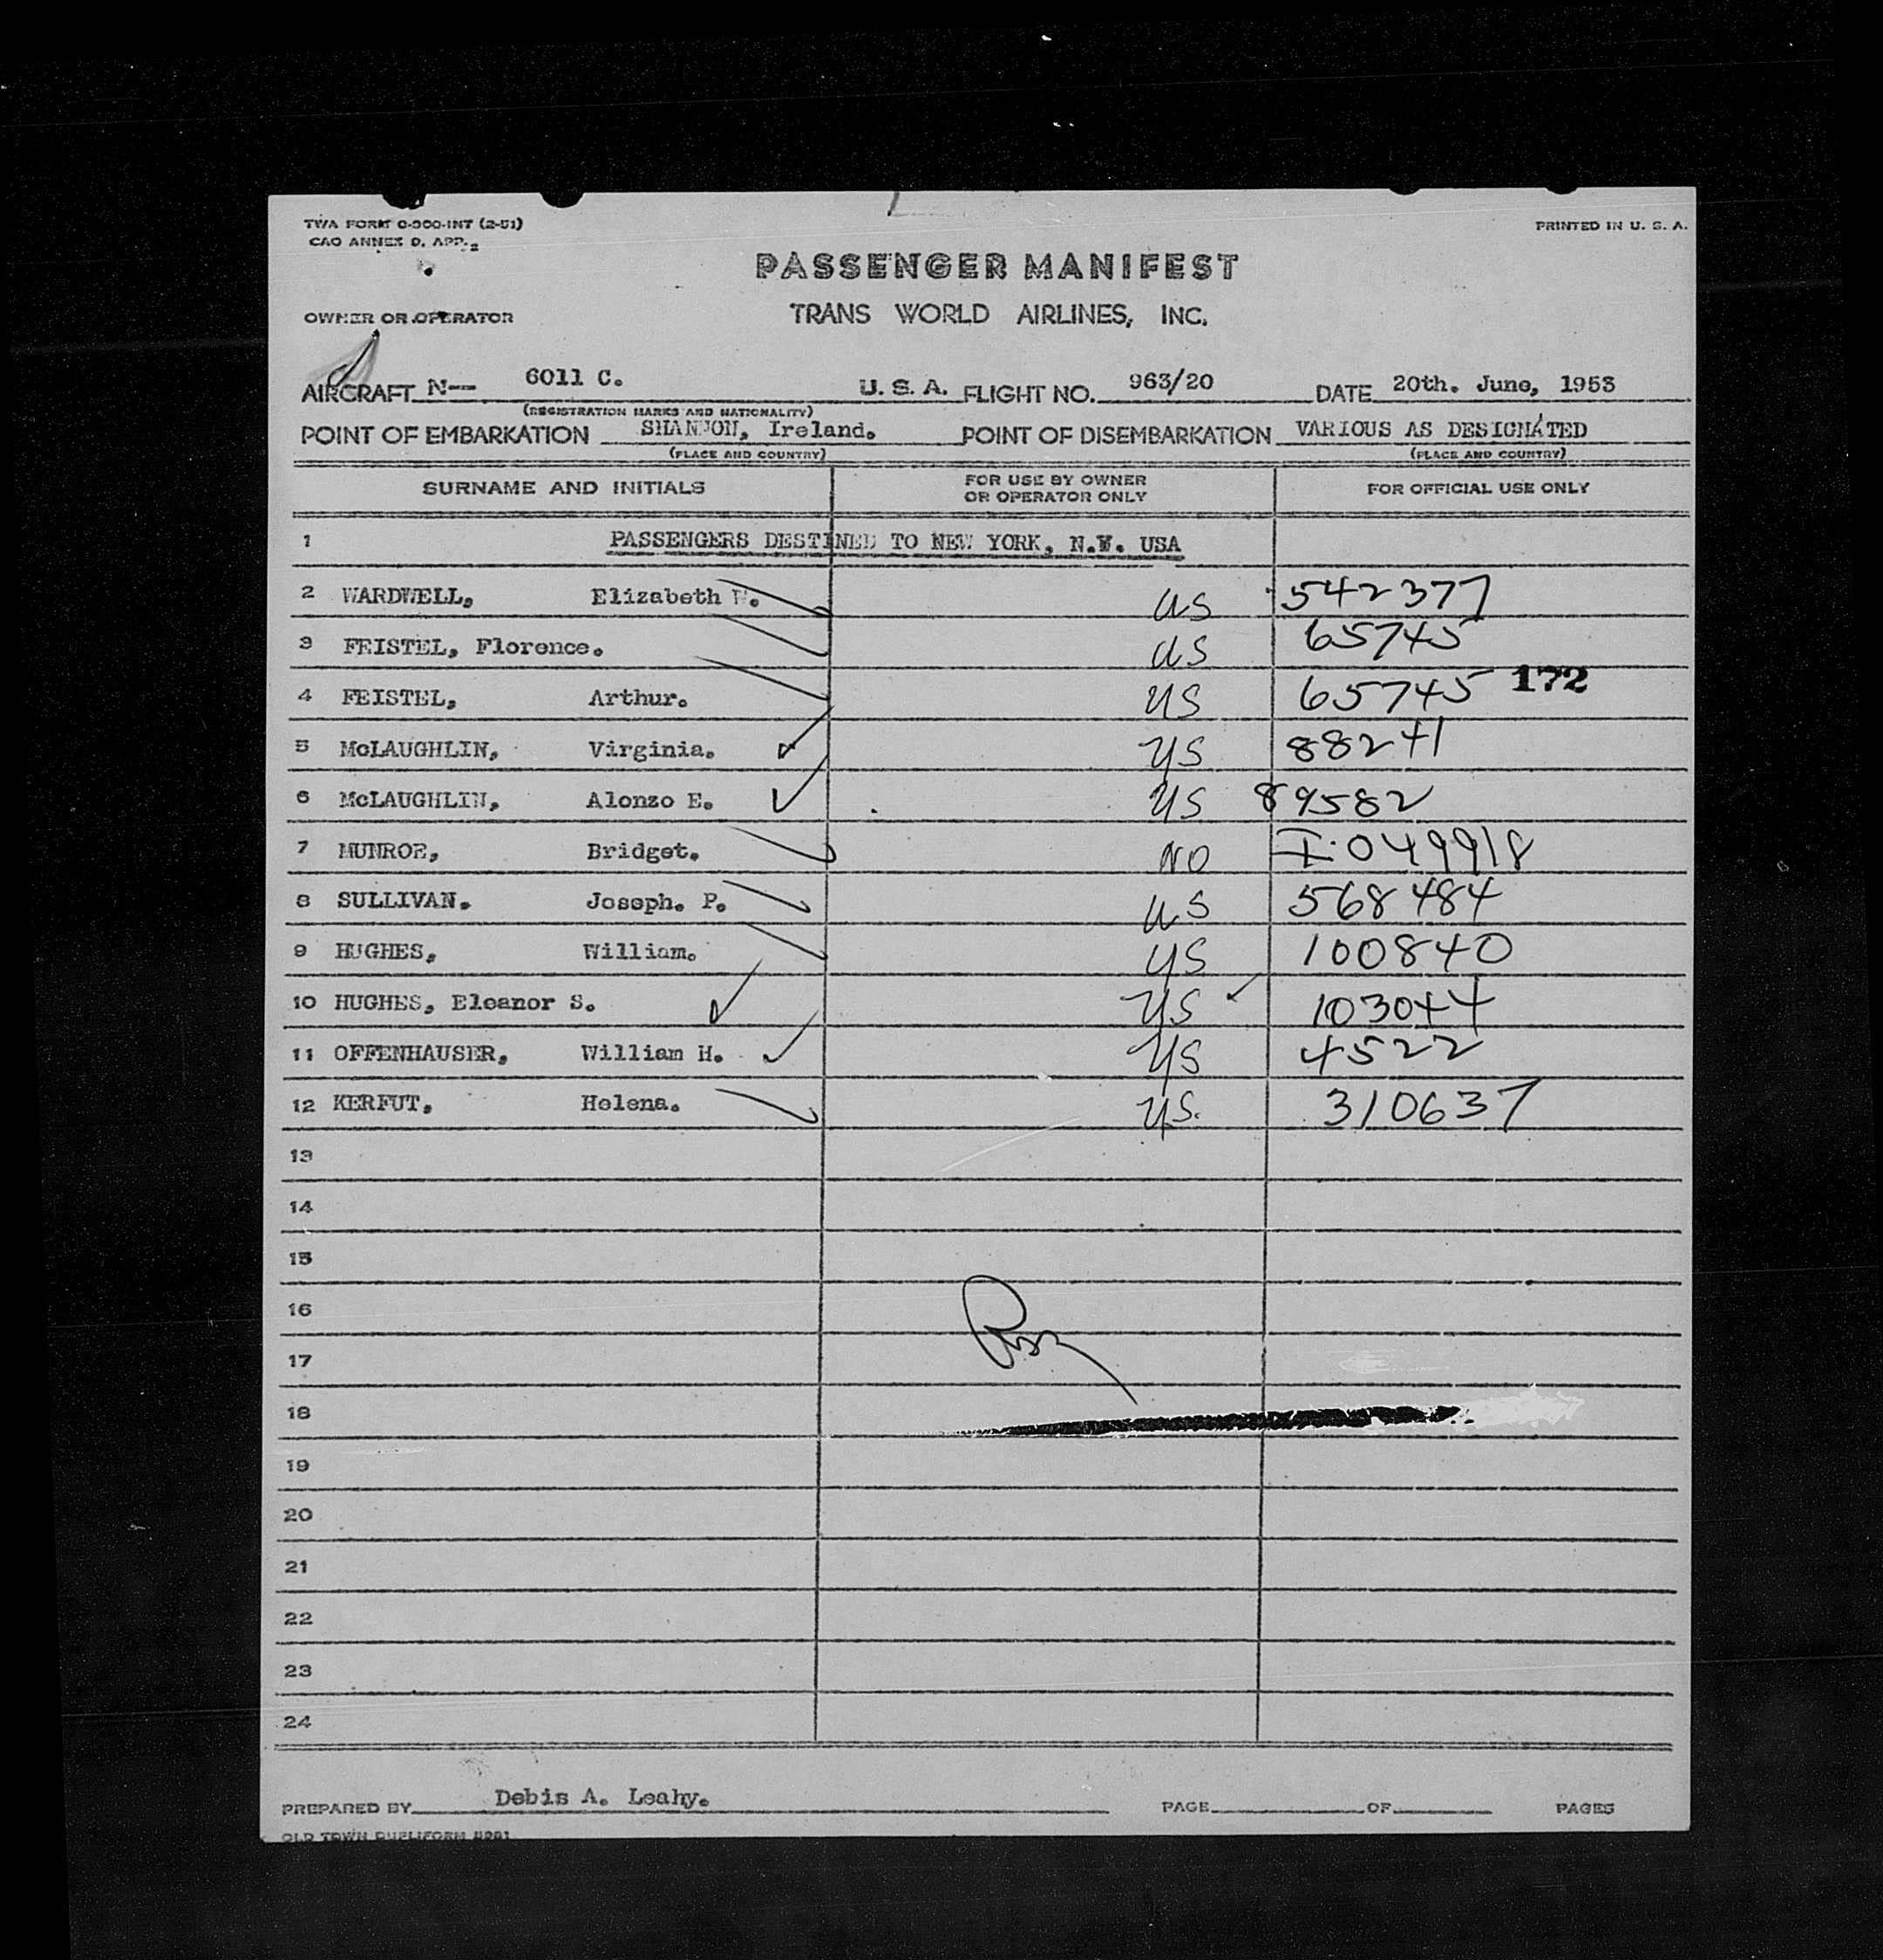 TWA FORM 0-300-INT (2-51)
PRINTED IN U. S. A.
CAO ANNEX D, APP. 2
PASSENGER MANIFEST
OWNER OR OPERATOR
TRANS WORLD AIRLINES, INC.
AIRCRAFT N— 6011 C. U. S. A. FLIGHT NO. 963/20 DATE 20th. June, 1953
(REGISTRATION MARKS AND NATIONALITY)
POINT OF EMBARKATION SHANNON, Ireland. POINT OF DISEMBARKATION VARIOUS AS DESIGNATED
(PLACE AND COUNTRY) (PLACE AND COUNTRY)
SURNAME AND INITIALS FOR USE BY OWNER OR OPERATOR ONLY FOR OFFICIAL USE ONLY
1 PASSENGERS DESTINED TO NEW YORK, N.Y. USA
2 WARDWELL, Elizabeth W. US 542377
3 FEISTEL, Florence. US 65745
172
4 FEISTEL, Arthur. US 65745
5 McLAUGHLIN, Virginia. US 88241
6 McLAUGHLIN, Alonzo E. US 89582
7 MUNROE, Bridget. NO I-049918
8 SULLIVAN. Joseph. P. US 568484
9 HUGHES, William. US 100840
10 HUGHES, Eleanor S. US 103044
11 OFFENHAUSER, William H. US 4522
12 KERFUT, Helena. US. 310637
13
14
15
16
17
18
19
20
21
22
23
24
PREPARED BY Debis A. Leahy. PAGE OF PAGES
OLD TOWN DUPLIFORM